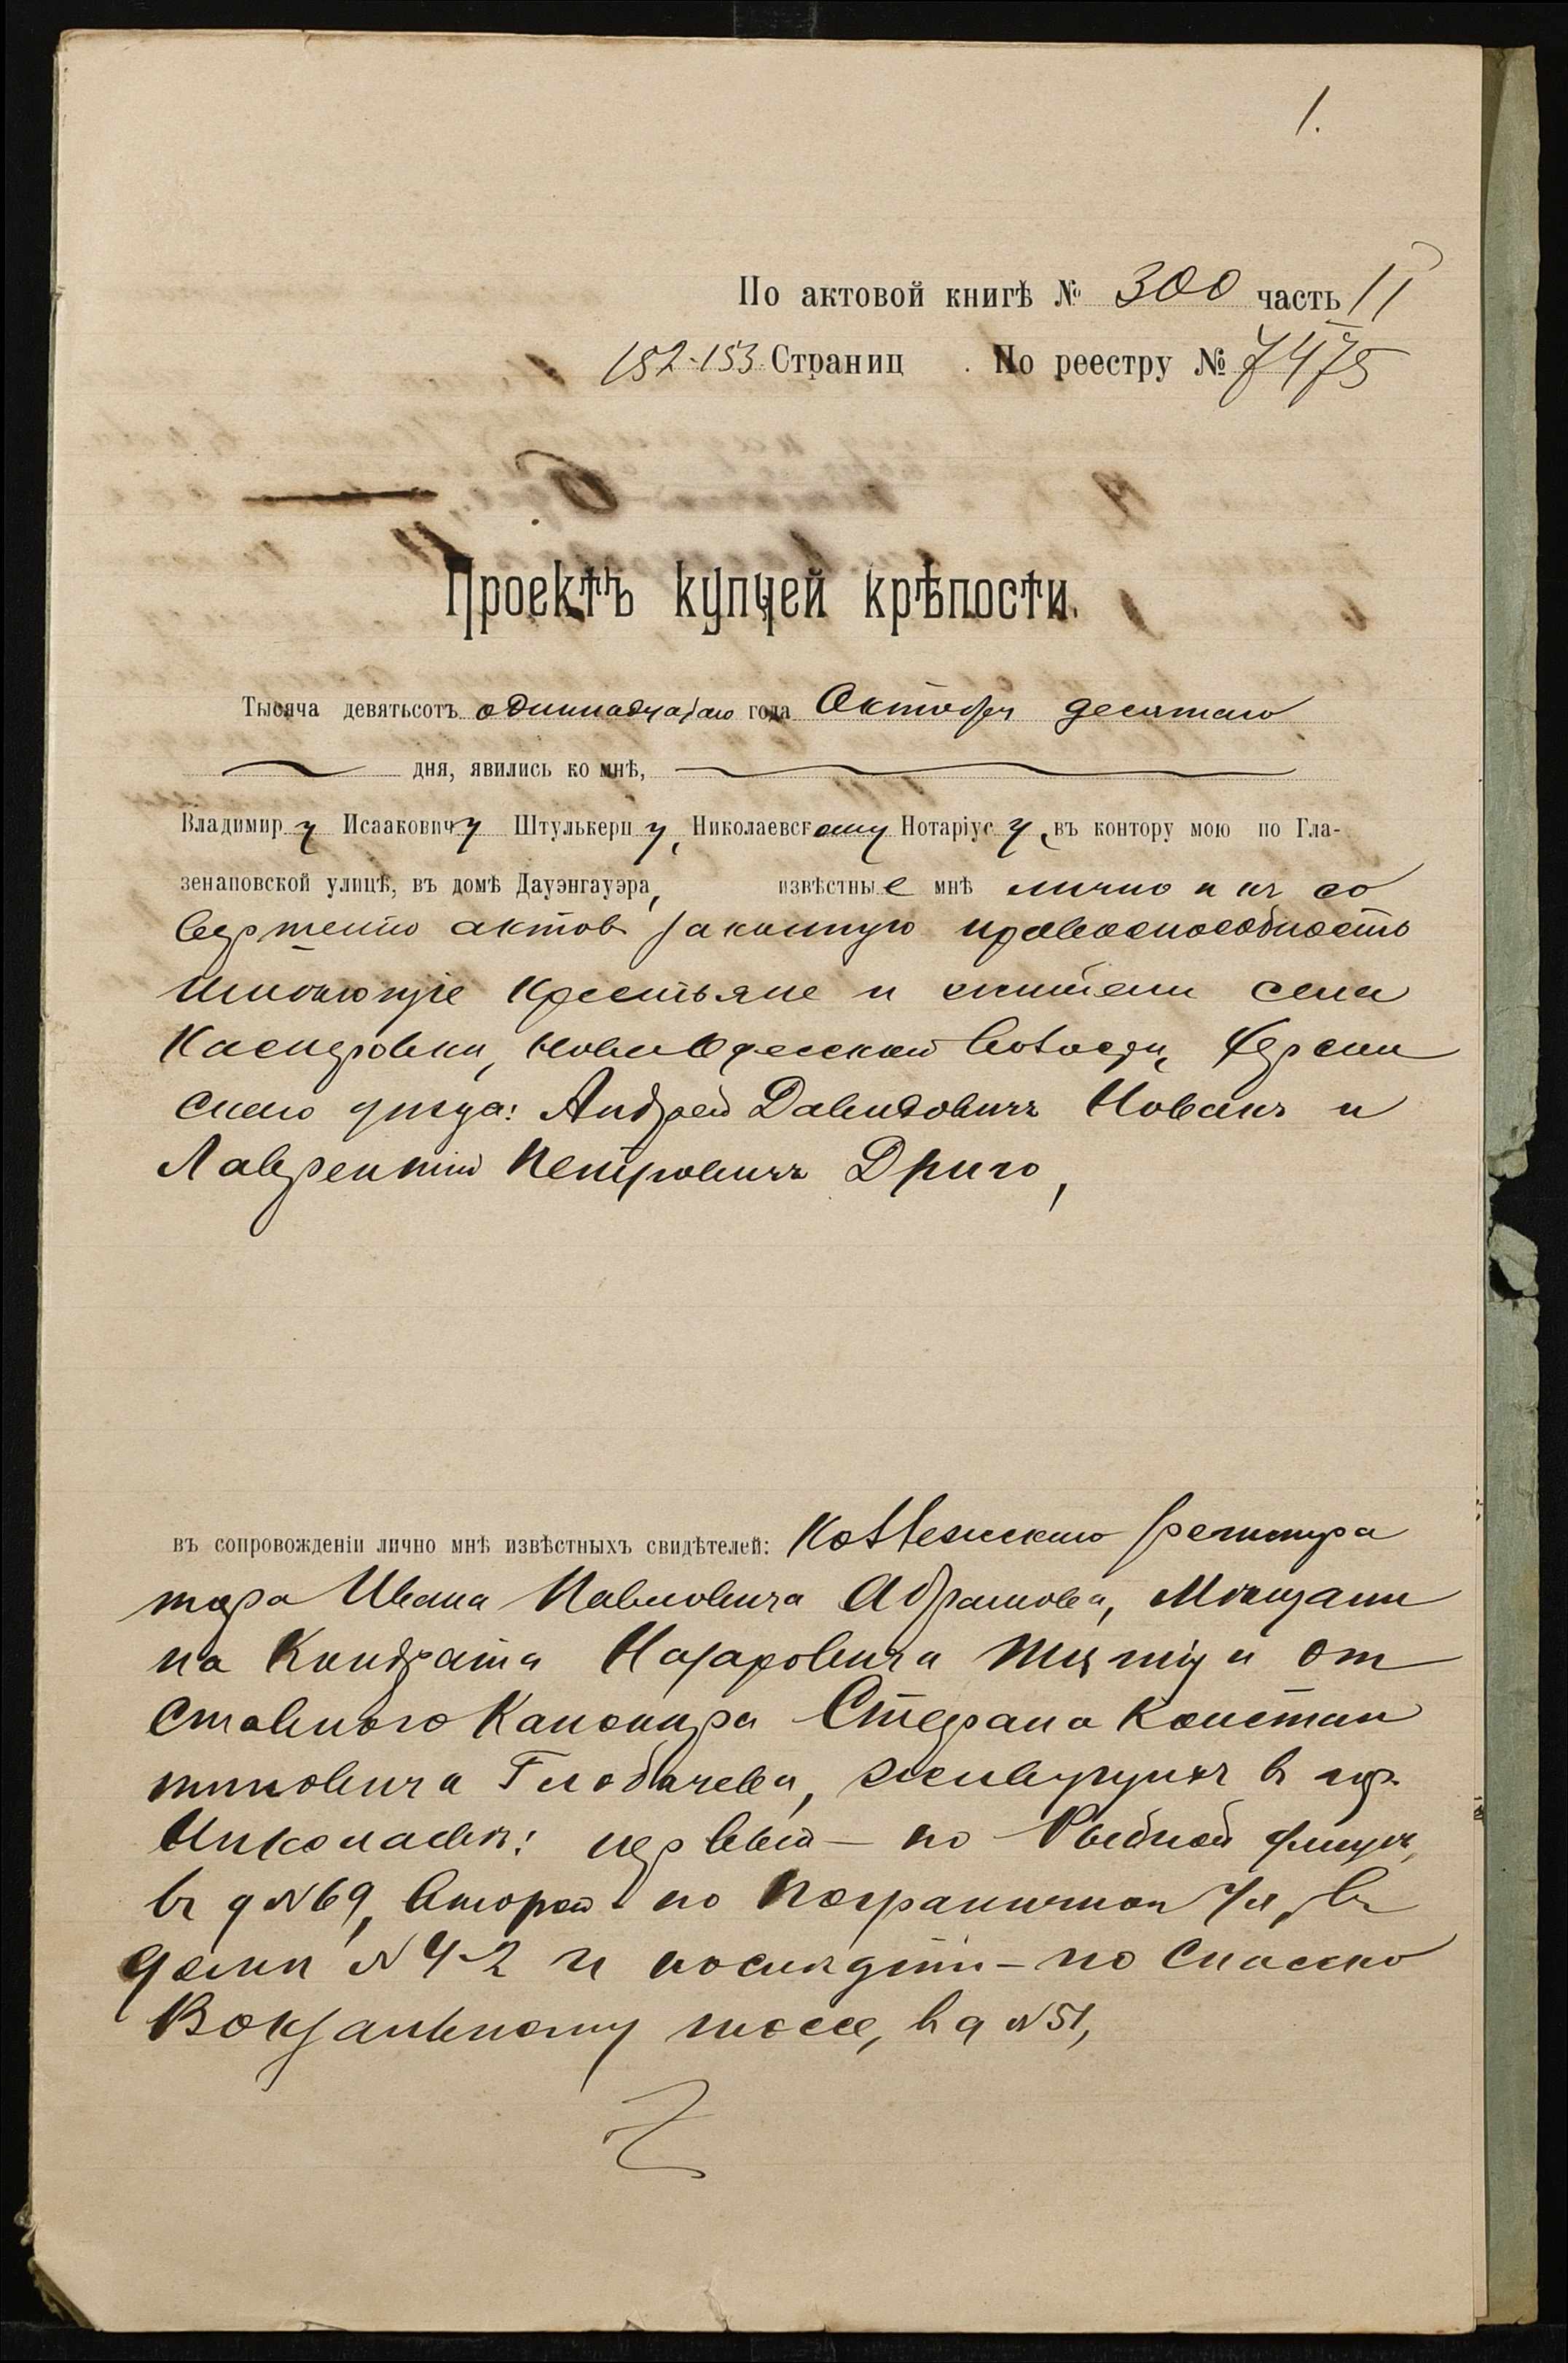 1.
По актовой книгѣ № 300 часть II
152-153 Страниц . По реестру № 7475
Проектъ купчей крѣпости.
Тысяча девятьсотъ одиннадцатаго года Октября десятаго
дня, явились ко мнѣ,
Владимиру Исааковичу Штулькерцу, Николаевскому Нотаріусу, въ контору мою по Гла-
зенаповской улицѣ, въ домѣ Дауэнгауэра, извѣстные мнѣ лично и къ со
вершенію актов законную правоспособность
имѣющіе крестьяне и жители села
Касперовки, Ново Одесской волости, Херсон
скаго уѣзда: Андрей Давидовичъ Новакъ и
Лаврентій Петровичъ Дриго,
въ сопровожденіи лично мнѣ извѣстныхъ свидѣтелей: Коллежскаго регистра
тора Ивана Павловича Абрамова, Мѣщани
на Кондрата Назаровича и от
ставного Канонира Стефана Констан
тиновича Глобачева, живущихъ в гор.
Николаевѣ: первый — по Рыбной улицѣ,
въ д № 69, второй - по Пограничной ул, въ
домѣ № 42 и послѣдній - по Спасско
Вокзальному шоссе, в д № 51,